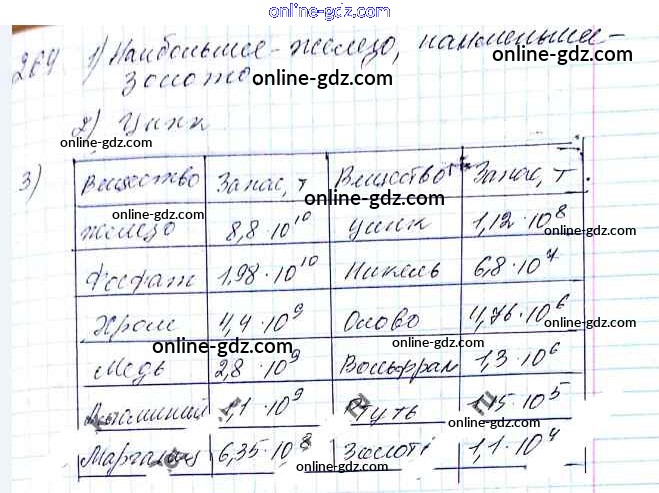 online-gdz.com
264 1) Наибольшее - железо, наименьшее -
золото online-gdz.com
2) Цинк
online-gdz.com
3)
Вещество Запас, т Вещество Запас, т
online-gdz.com
железо 8,8 · 10^10 цинк 1,12 · 10^8
online-gdz.com online-gdz.com
Фосфат 1,98 · 10^10 Никель 6,8 · 10^7
Хром 4,4 · 10^9 Олово 4,76 · 10^6
online-gdz.com online-gdz.com
Медь 2,8 · 10^9 Вольфрам 1,3 · 10^6
Алюминий 1,1 · 10^9 Ртуть 1,15 · 10^5
ru ru
Марганец 6,35 · 10^8 Золото 1,1 · 10^4
online-gdz.com
online-gdz.com